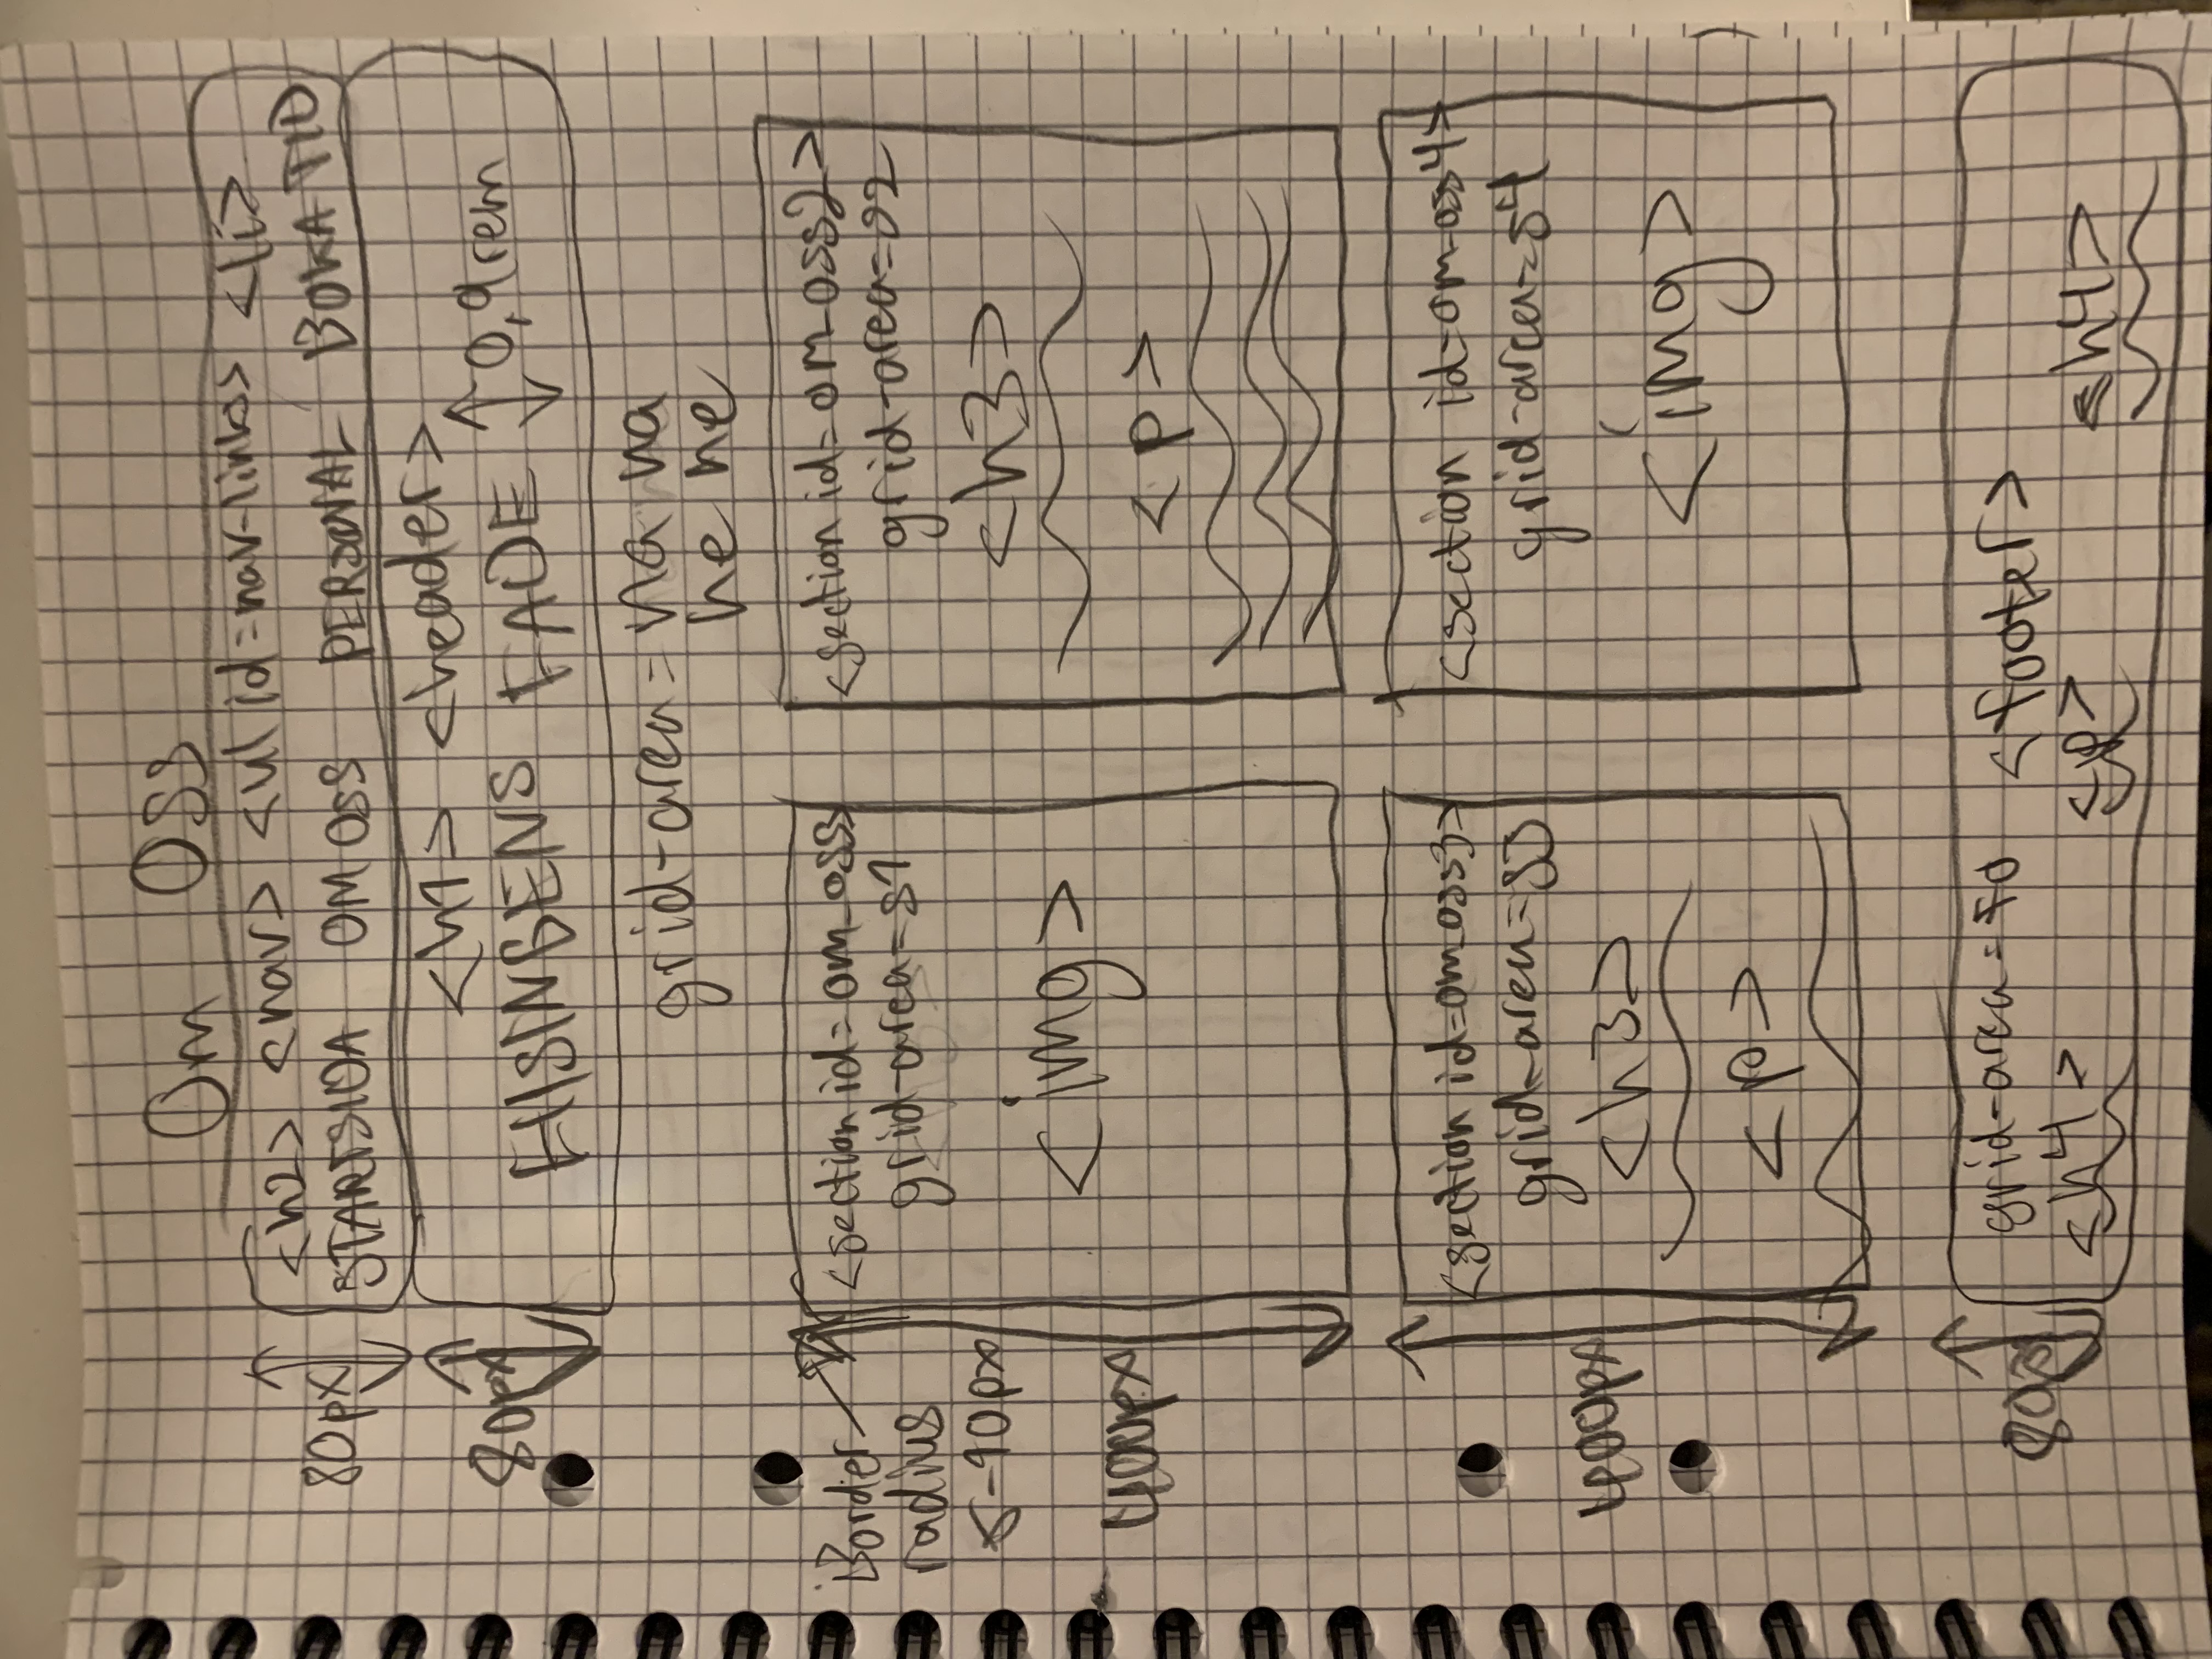 Om Oss
<h2> <nav> <ul id=nav-links> <li>
80px
STARTSIDA OM OSS PERSONAL BOKA TID
<h1> <header>
80px
HISINGENS FADE 0,9rem
grid-area = na na
he he
Border
radius
5-10px
<section id=om_oss>
grid-area=s1
<img>
400px
<section id=om_oss2>
grid-area=s2
<h3>
<p>
<section id=om_oss3>
grid-area=s3
<h3>
<p>
400px
<section id=om_oss4>
grid-area=s4
<img>
80px
grid-area=fo <footer>
<h4> <p> <h4>